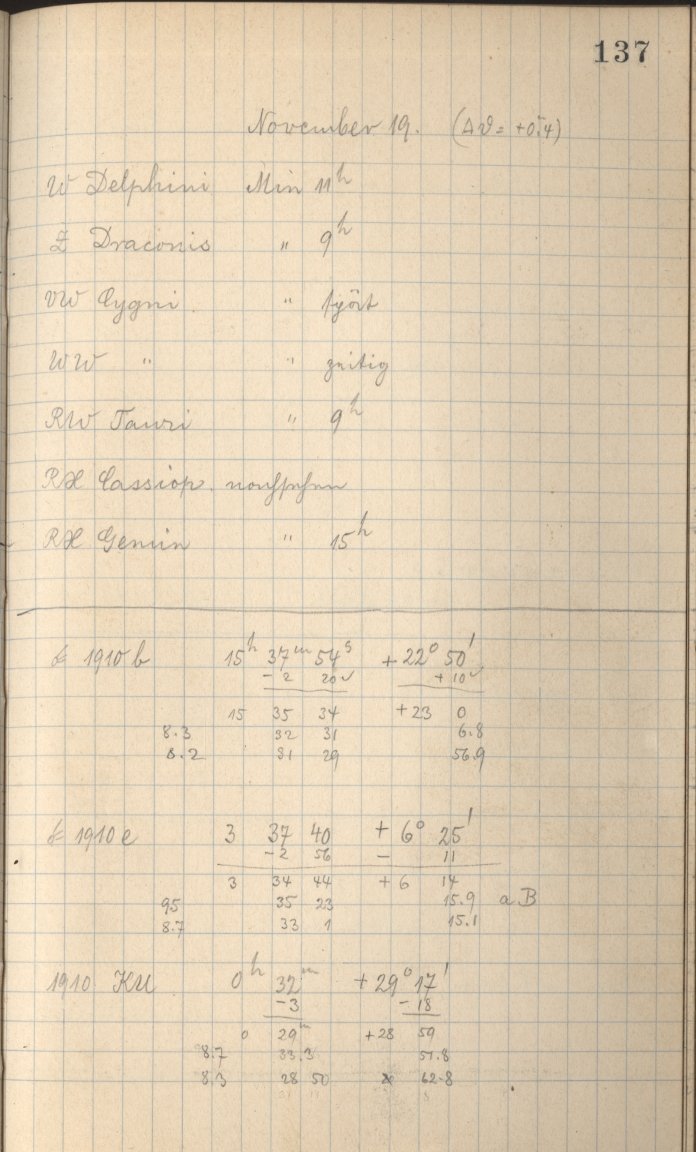 137
November 19. (Δϑ = +0.4)
W Delphini Min 11h
Z Draconis " 9h
VW Cygni " spät
WW " " zeitig
RW Tauri " 9h
RX Cassiop. nachsehen
RX Gemin " 15h
1910 b 15h 37m 54s +22° 50'
-2 20✓ +10✓
15 35 34 +23 0
8.3 32 31 6.8
8.2 31 29 56.9
1910 e 3 37 40 + 6° 25'
-2 56 - 11
3 34 44 + 6 14
95 35 23 15.9 a B
8.7 33 1 15.1
1910 KU 0h 32m +29° 17'
-3 -18
0 29m +28 59
8.7 33.3 51.8
8.3 28 50 62.8